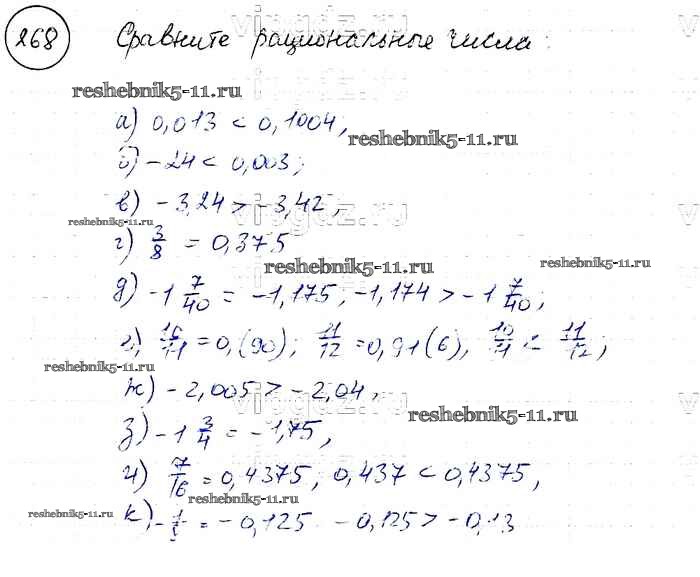 268 Сравните рациональные числа:
reshebnik5-11.ru
а) 0,013 < 0,1004;
reshebnik5-11.ru
б) -24 < 0,003;
в) -3,24 > -3,42,
reshebnik5-11.ru
г) 3/8 = 0,375
reshebnik5-11.ru
reshebnik5-11.ru
д) -1 7/40 = -1,175, -1,174 > -1 7/40;
= 0,(90); 11/12 = 0,91(6), 10/11 < 11/12;
reshebnik5-11.ru
ж) -2,005 > -2,04,
reshebnik5-11.ru
з) -1 3/4 = -1,75,
и) 7/16 = 0,4375; 0,437 < 0,4375,
reshebnik5-11.ru
reshebnik5-11.ru
к) = -0,125 -0,125 > -0,13